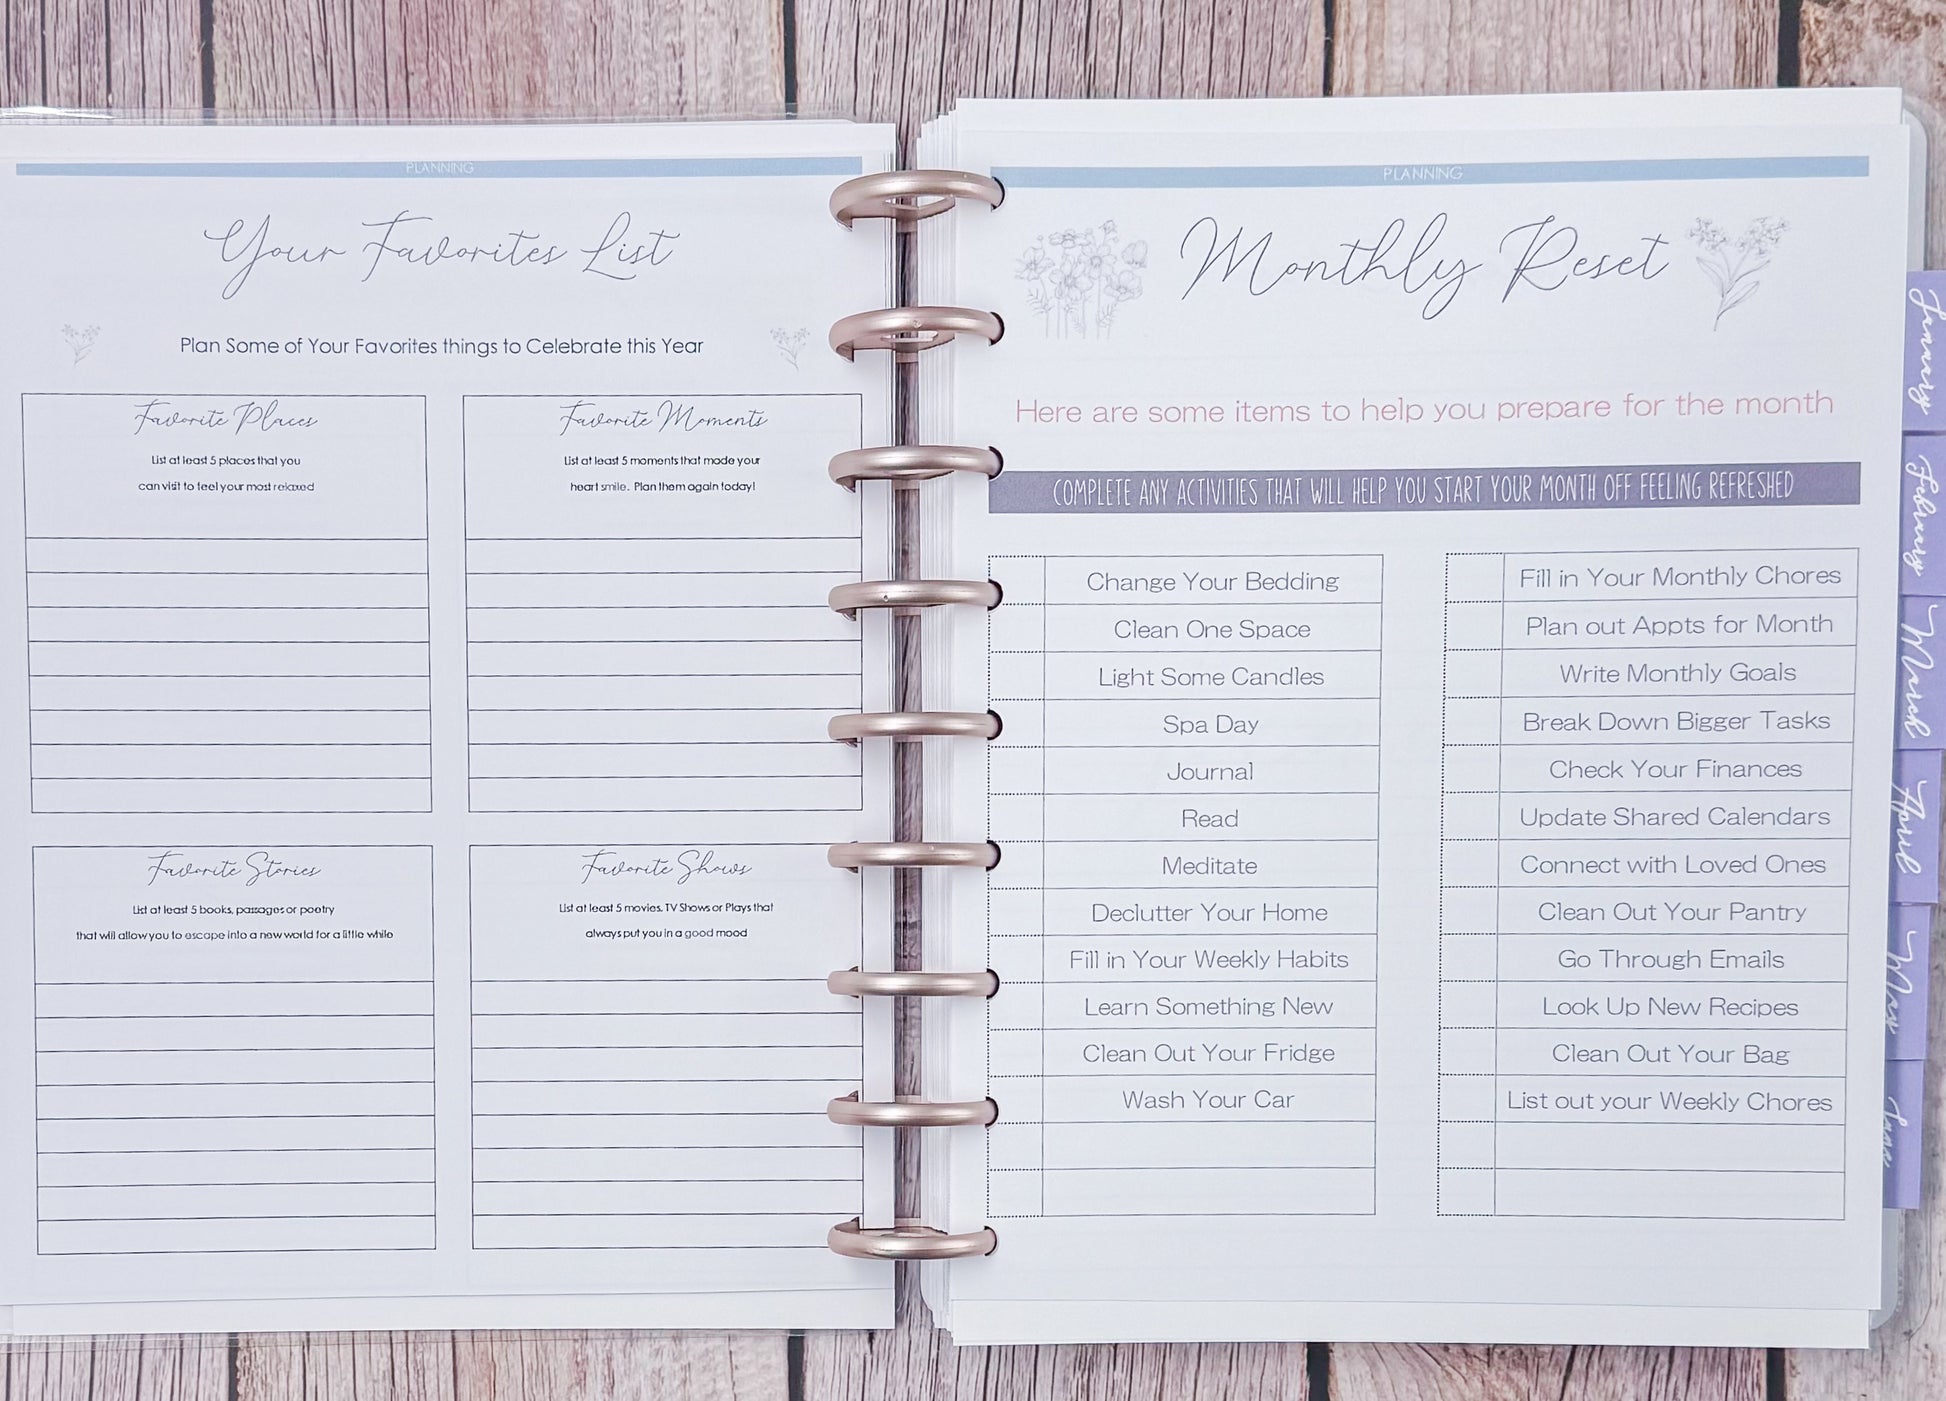 PLANNING
Your Favorites List
Plan Some of Your Favorites things to Celebrate this Year
Favorite Places
List at least 5 places that you
can visit to feel your most relaxed
Favorite Moments
List at least 5 moments that made your
heart smile. Plan them again today!
Favorite Stories
List at least 5 books, passages or poetry
that will allow you to escape into a new world for a little while
Favorite Shows
List at least 5 movies, TV Shows or Plays that
always put you in a good mood
PLANNING
Monthly Reset
Here are some items to help you prepare for the month
COMPLETE ANY ACTIVITIES THAT WILL HELP YOU START YOUR MONTH OFF FEELING REFRESHED
Change Your Bedding
Clean One Space
Light Some Candles
Spa Day
Journal
Read
Meditate
Declutter Your Home
Fill in Your Weekly Habits
Learn Something New
Clean Out Your Fridge
Wash Your Car
Fill in Your Monthly Chores
Plan out Appts for Month
Write Monthly Goals
Break Down Bigger Tasks
Check Your Finances
Update Shared Calendars
Connect with Loved Ones
Clean Out Your Pantry
Go Through Emails
Look Up New Recipes
Clean Out Your Bag
List out your Weekly Chores
January
February
March
April
May
June